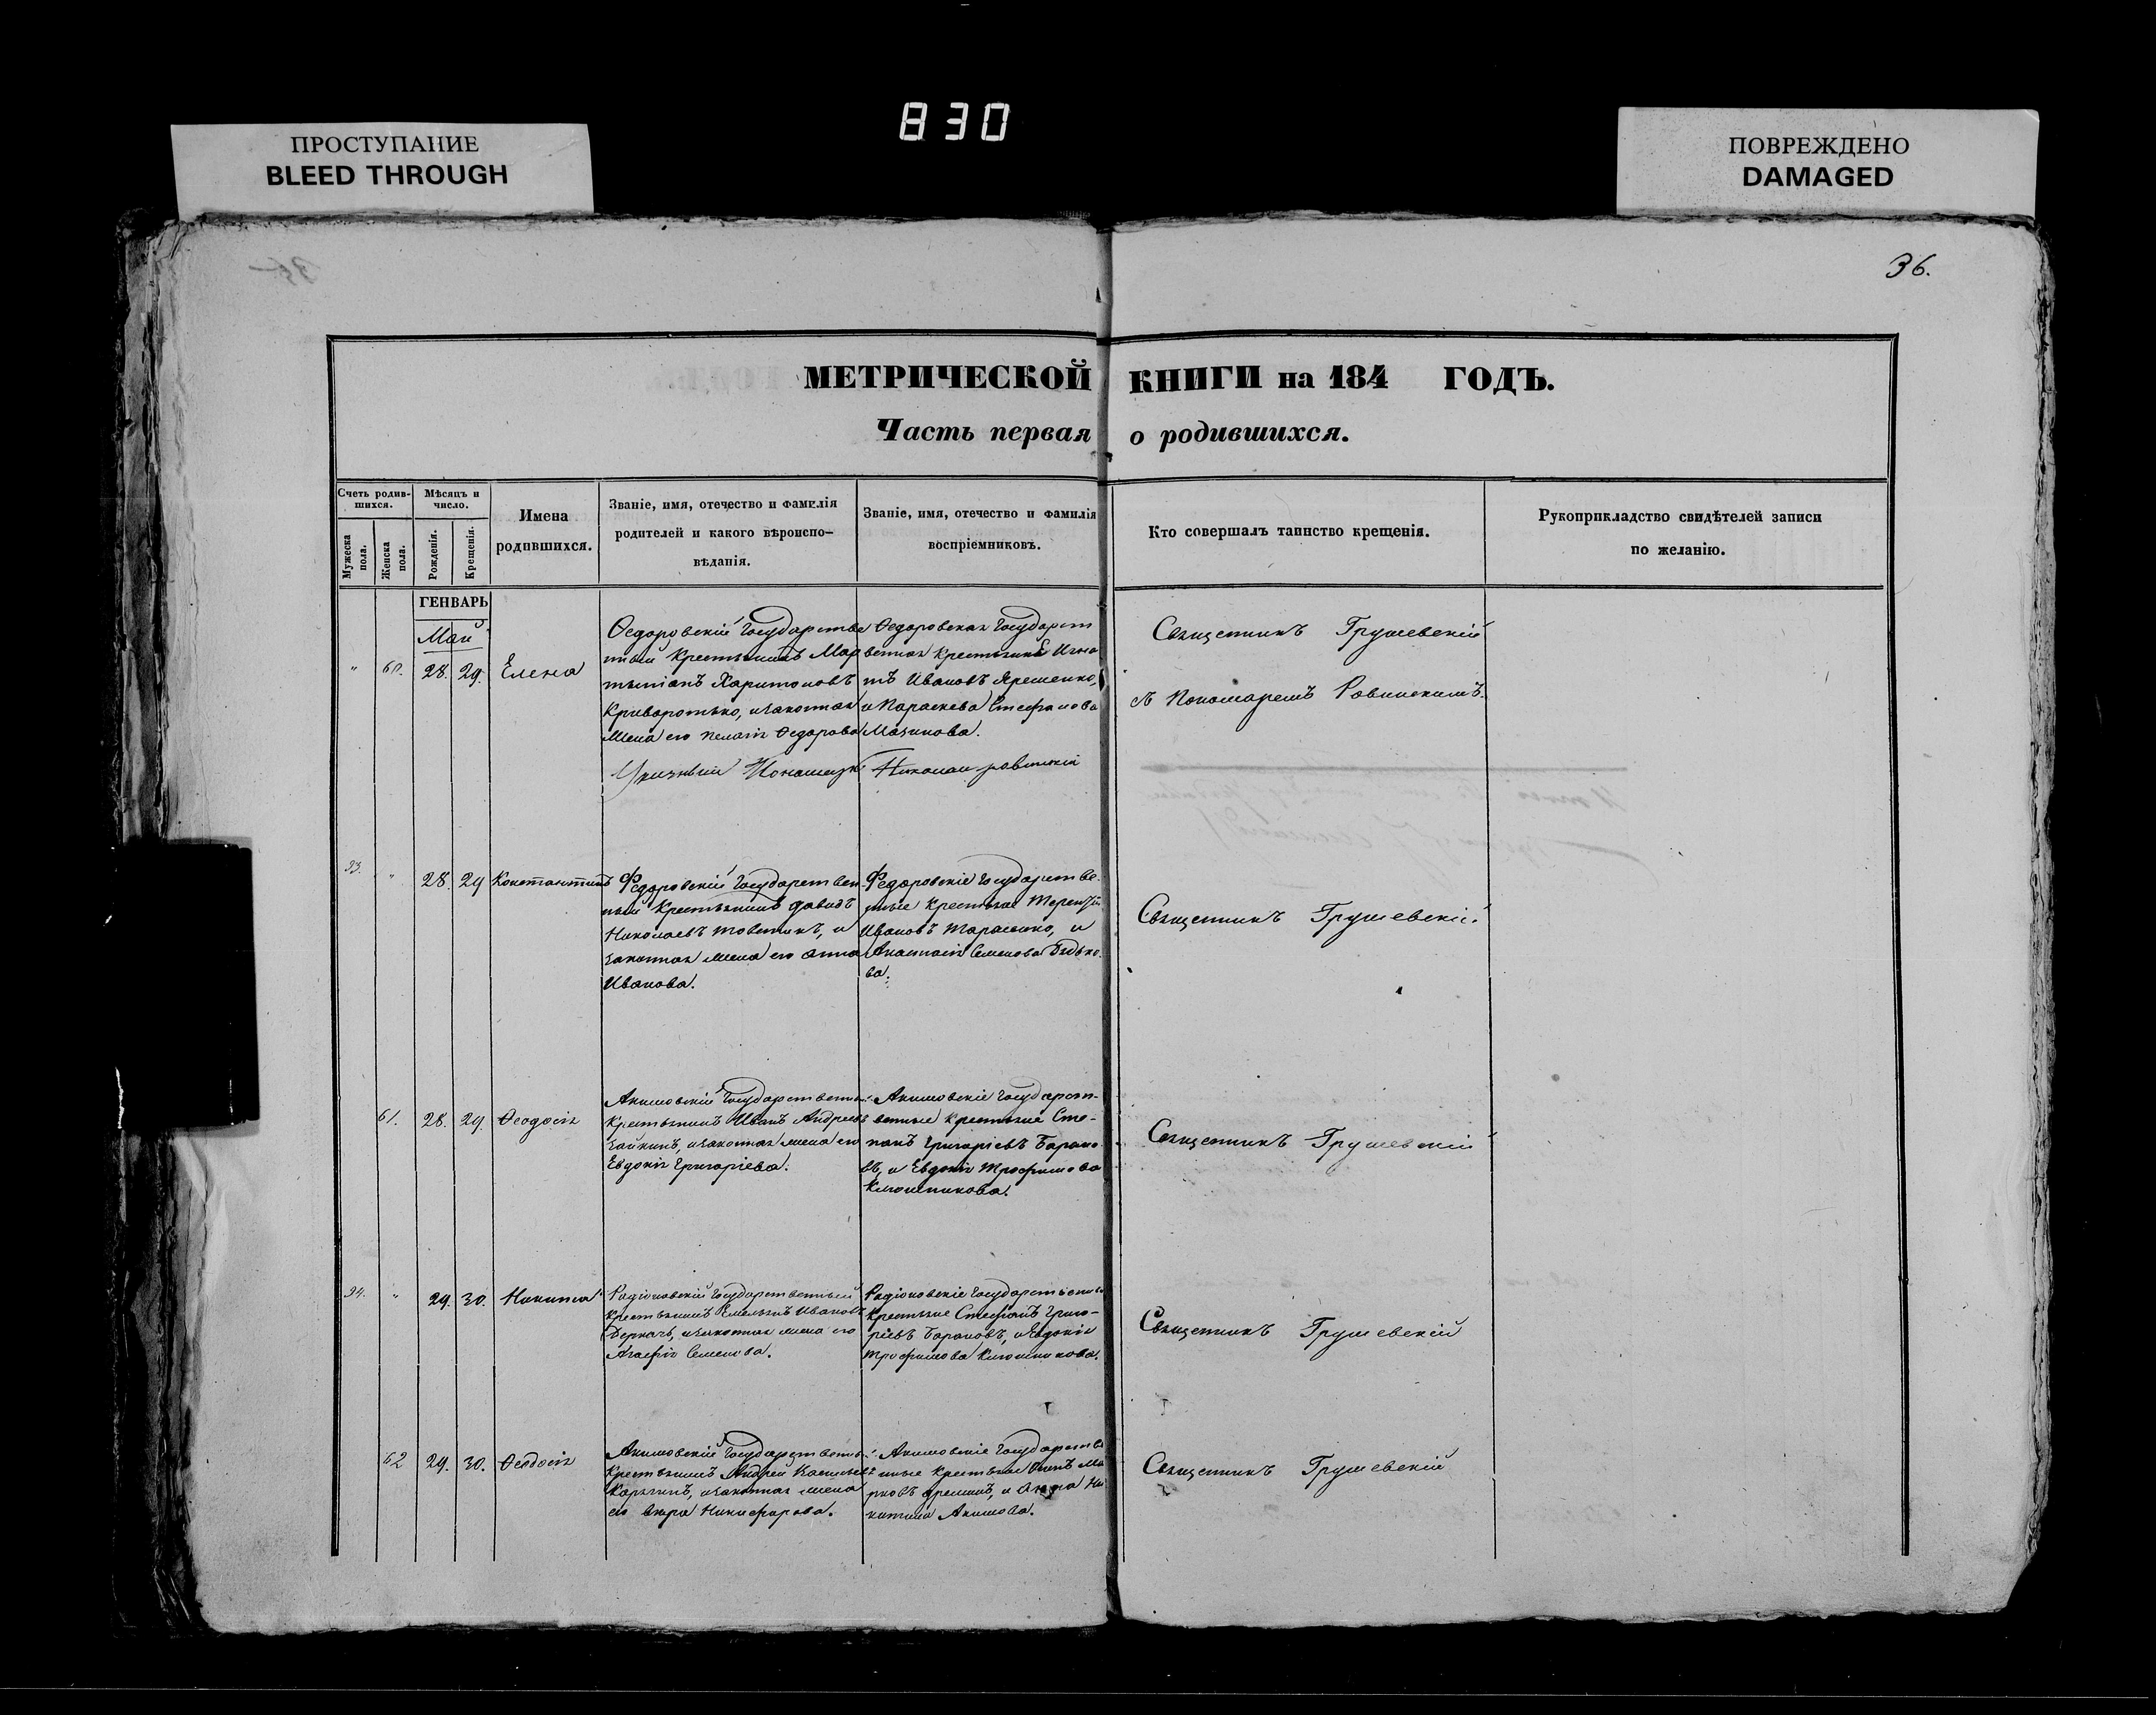 830
ПРОСТУПАНИЕ
BLEED THROUGH
ПОВРЕЖДЕНО
DAMAGED
36.
МЕТРИЧЕСКОЙ КНИГИ на 184 ГОДЪ.
Часть первая о родившихся.
Счетъ родив-
шихся.
Мужеска пола.
Женска пола.
Мѣсяцъ и
число.
Рожденія.
Крещенія.
Имена
родившихся.
Званіе, имя, отечество и фамилія
родителей и какого вѣроиспо-
вѣданія.
Званіе, имя, отечество и фамилія
воспріемниковъ.
Кто совершалъ таинство крещенія.
Рукоприкладство свидѣтелей записи
по желанію.
ГЕНВАРЬ
Май
" 60. 28. 29. Елена
Ѳедоровскій Государстве
нный Крестьянинъ Мар
тыніанъ Харитоновъ
Криворотько, и законная
жена его Пелагія Ѳедорова
Ѳедоровская Государст
венная Крестьянинъ Игна
тъ Ивановъ Ярешенко,
и Параскева Стефанова
Мазикова.
Священникъ Грушевскій
съ Пономаремъ Ровинскимъ.
Николай Ровинскій
93. " 28. 29 Константинъ
Федоровскій Государствен
ный Крестьянинъ Давидъ
Николаевъ Товстикъ, и
законная жена его Анна
Иванова.
Федоровскіе Государстве
нные Крестьяне Терентій
Ивановъ Тарасенко, и
Анастасія Семенова Бидько
ва.
Священникъ Грушевскій
61. 28. 29. Ѳеодосія
Акимовскій Государственн.
Крестьянинъ Иванъ Андреевъ
Зайкинъ, и законная жена его
Евдокія Григоріева.
Акимовскіе Государст-
венные крестьяне Сте-
панъ Григоріевъ Барано
въ, и Евдокія Трофимова
Ключникова.
Священникъ Грушевскій
94. " 29. 30. Никита
Радіоновскій Государственный
Крестьянинъ Емельянъ Ивановъ
Деркачъ, и законная жена его
Агафія Семенова.
Радіоновскіе Государственны
Крестьяне Стефанъ Григо-
ріевъ Барановъ, и Евдокія
Трофимова Ключникова.
Священникъ Грушевскій
62 29. 30. Ѳеодосія
Акимовскій Государственн.
Крестьянинъ Андрей Васильевъ
Карягинъ, и законная жена
его Вѣра Никифорова.
Акимовскіе Государстве
нные Крестьяне Осипъ Ма
рковъ Ереминъ, и Анна Ни
китина Акимова.
Священникъ Грушевскій